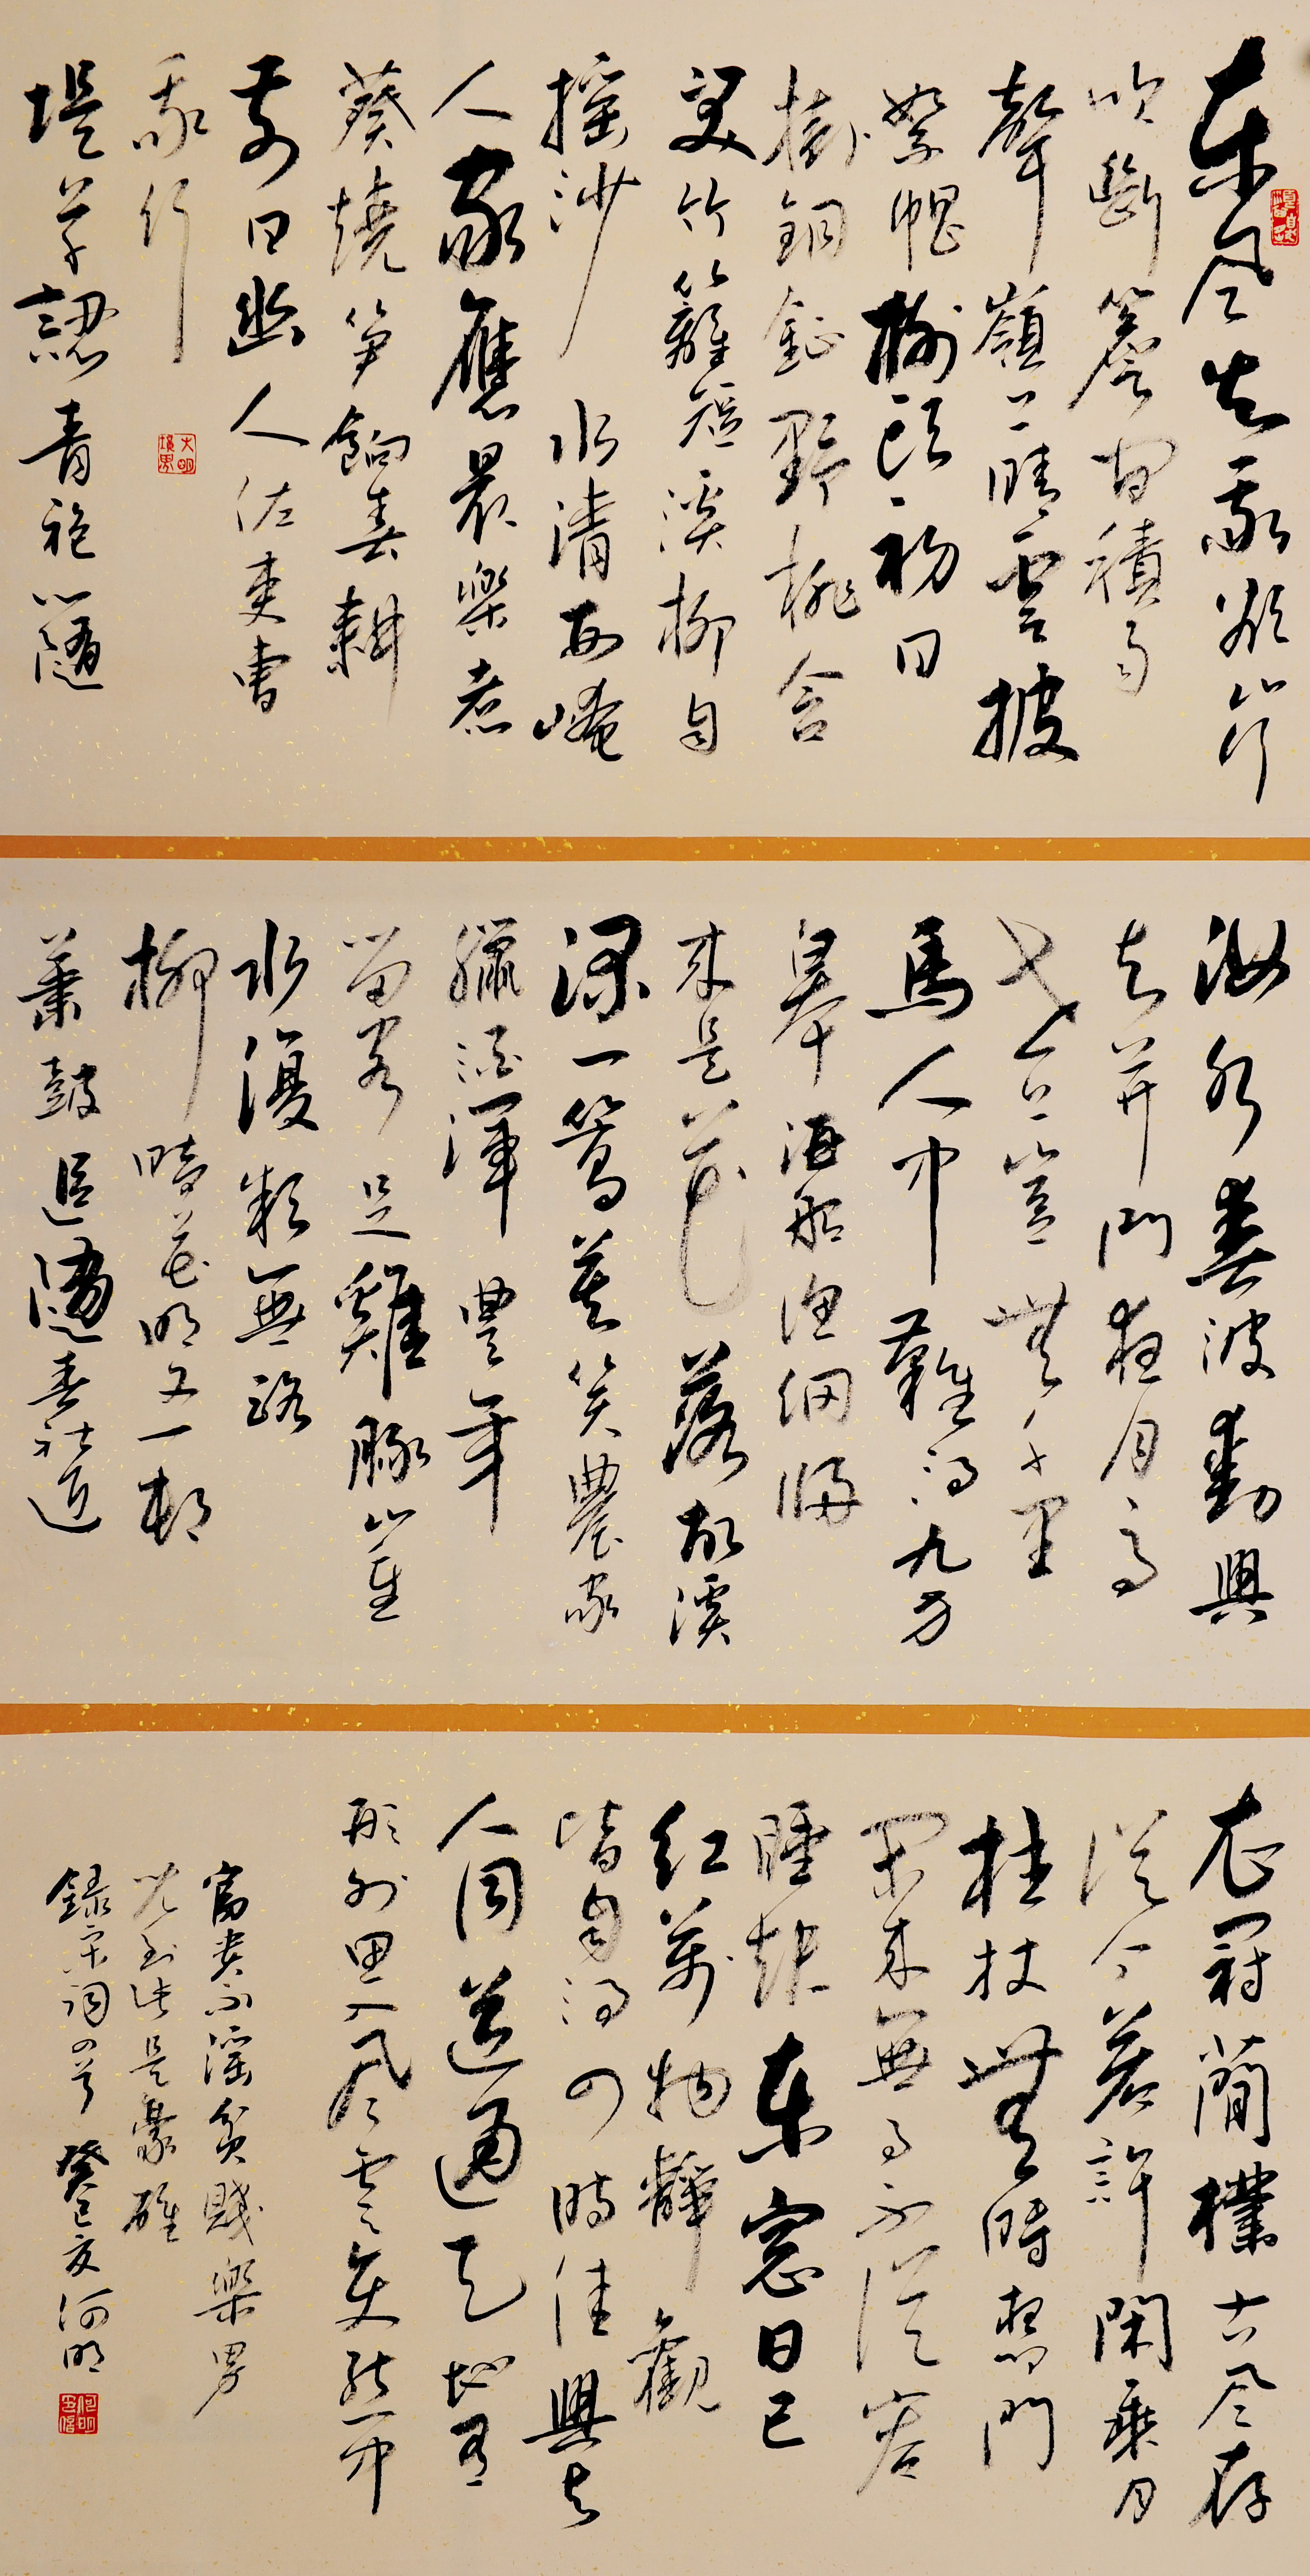 東風知我欲山行
吹斷簷間積雨
聲嶺上晴雲披
絮帽樹頭初日
掛銅鉦野桃含
笑竹籬短溪柳自
搖沙水清西崦
人家應最樂煮
葵燒筍餉春耕
前日幽人佐吏曹
我行
堤草認青袍心隨
汝水春波動興
與并門夜月高
世上豈無千里
馬人中難得九方
皋酒船漁網歸
來是花落故溪
深一篙莫笑農家
臘酒渾豐年
留客足雞豚山重
水複疑無路
柳暗花明又一村
簫鼓追隨春社近
衣冠簡樸古風存
從今若許閑乘月
拄杖無時夜叩門
閑來無事不從容
睡覺東窗日已
紅萬物靜觀
皆自得四時佳興與
人同道通天地有
形外思入風雲變態中
富貴不淫貧賤樂男
兒到此是豪雄
錄宋詞四首 癸巳夏 河明